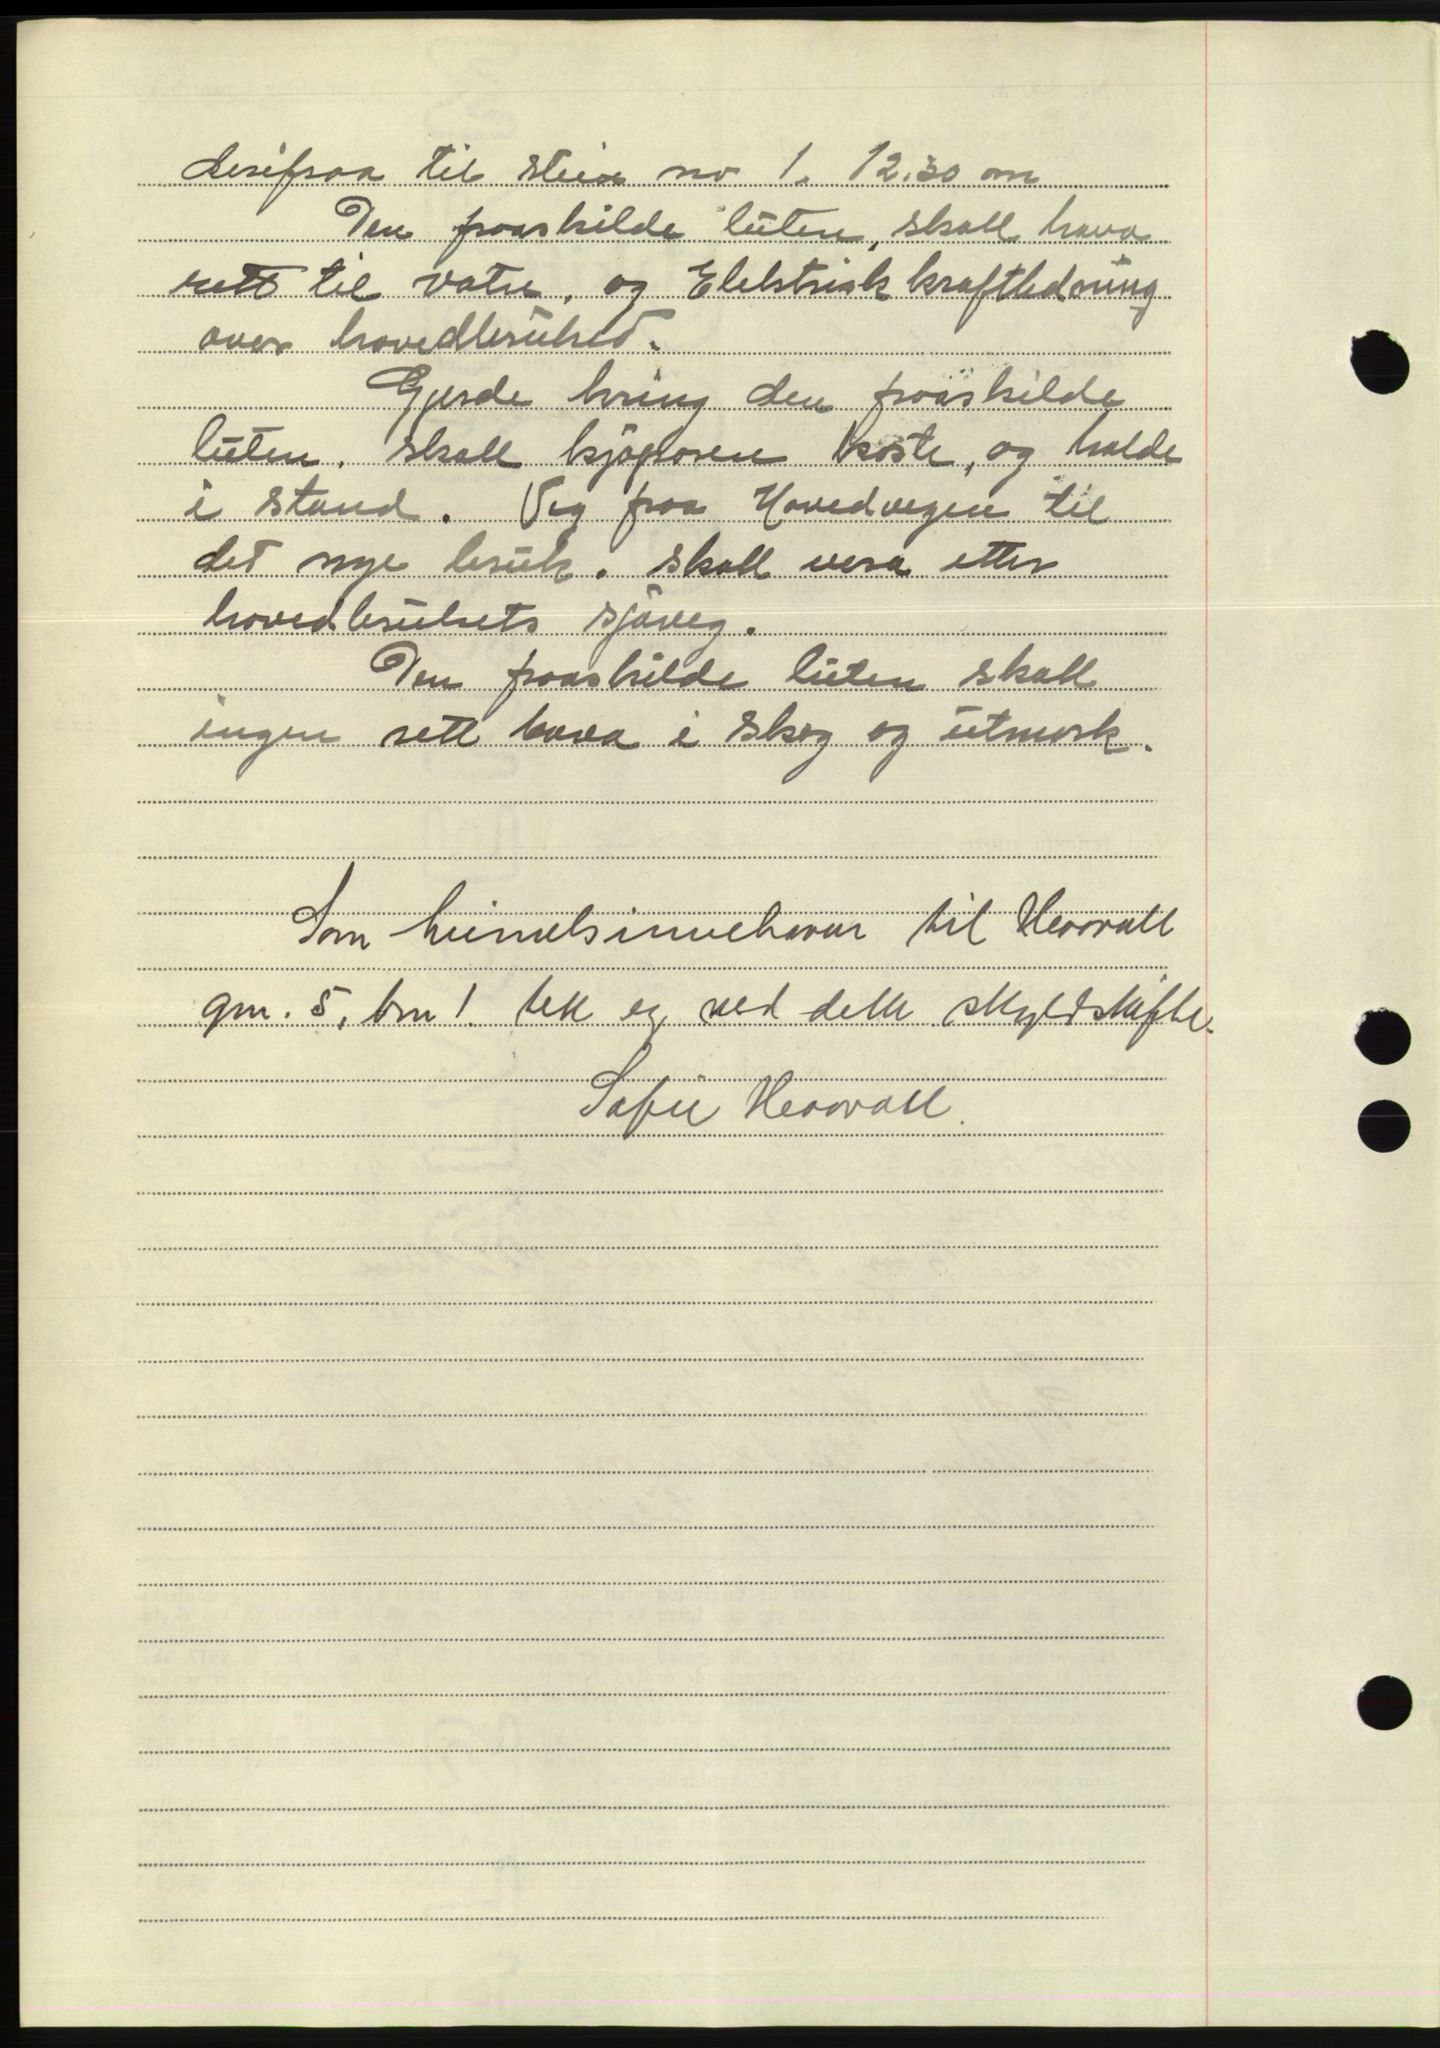 derifraa til stein no 1. 12.30 m
Den fraaskilde luten, skall hava
rett til vatn, og Elektrisk kraftledning
over hovedbruket.
Gjerde kring den fraaskilde
luten. skall kjøparen koste, og halde
i stand. Veg fraa Hovedvegen til
det nye bruk. skall vera etter
hovedbrukets sjøveg.
Den fraaskilde luten skall
ingen rett hava i skog og utmark.
Som heimelsinnehavar til Heovoll
gnr. 5, bnr 1. tek eg ved dette skyldskifte.
Sofie Heovoll.